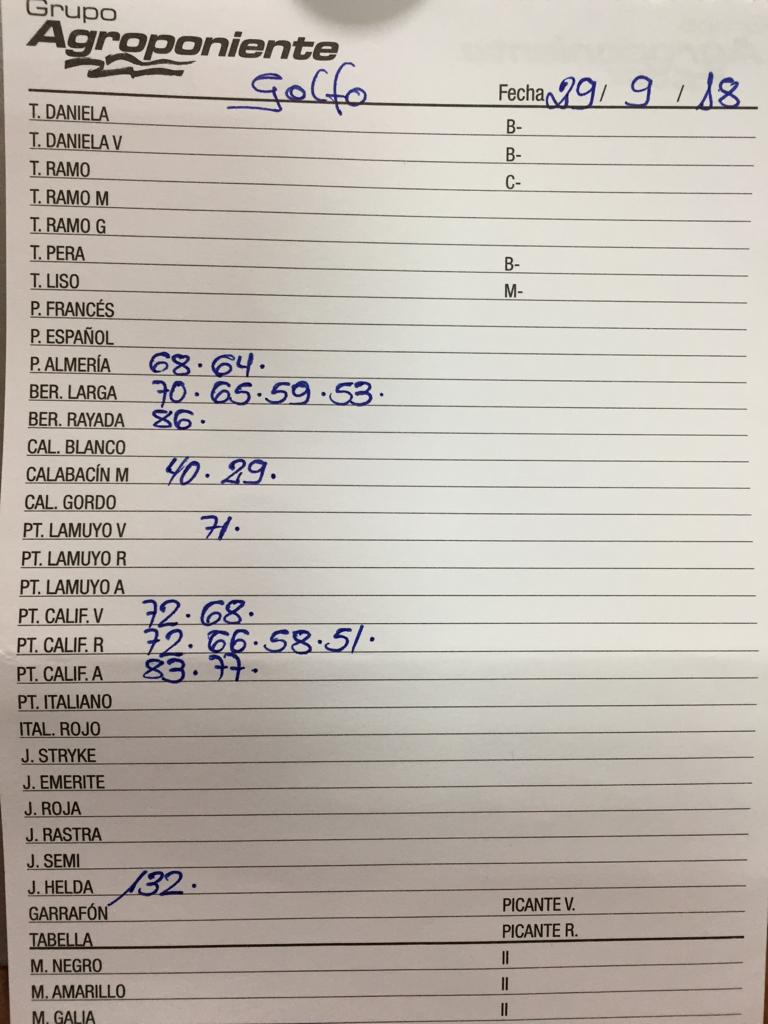 Grupo
Agroponiente
Golfo Fecha 29/ 9 / 18
T. DANIELA B-
T. DANIELA V B-
T. RAMO C-
T. RAMO M
T. RAMO G
T. PERA B-
T. LISO M-
P. FRANCÉS
P. ESPAÑOL
P. ALMERÍA 68. 64.
BER. LARGA 70. 65. 59. 53.
BER. RAYADA 86.
CAL. BLANCO
CALABACÍN M 40. 29.
CAL. GORDO
PT. LAMUYO V 71.
PT. LAMUYO R
PT. LAMUYO A
PT. CALIF. V 72. 68.
PT. CALIF. R 72. 66. 58. 51.
PT. CALIF. A 83. 77.
PT. ITALIANO
ITAL. ROJO
J. STRYKE
J. EMERITE
J. ROJA
J. RASTRA
J. SEMI
J. HELDA 132.
GARRAFÓN PICANTE V.
TABELLA PICANTE R.
M. NEGRO II
M. AMARILLO II
M. GALIA II